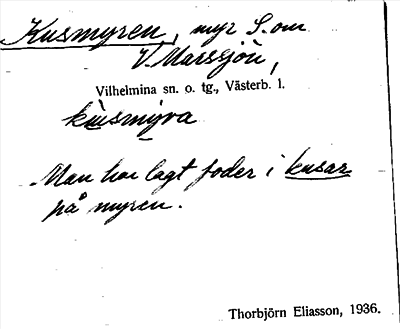 Kusmyren, myr S. om
V. Marssjön,
Vilhelmina sn. o. tg., Västerb. l.
kùsmýra
Man har lagt foder i kusar
på myren.
Thorbjörn Eliasson, 1936.